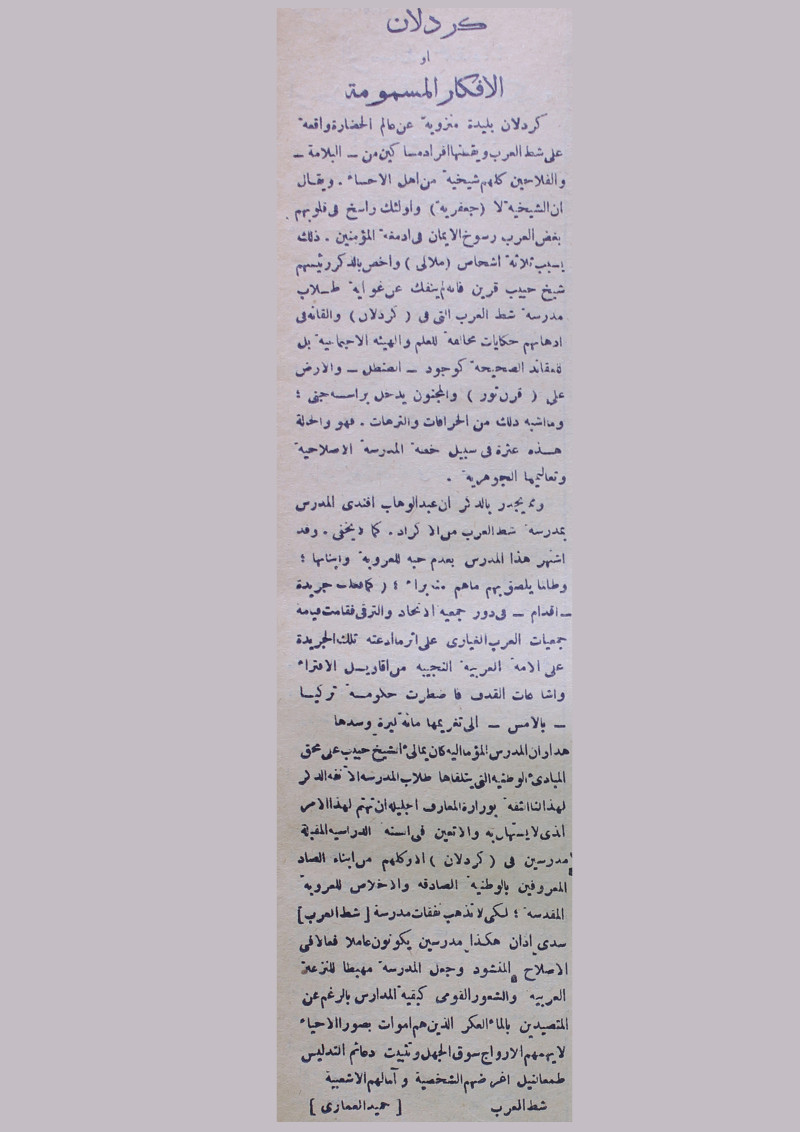 كردلان
او
الافكار المسمومة
كردلان بليدة منزوية عن عالم الحضارة واقعة
على شط العرب ويقطنها افراد مساكين من ـ البلامة ـ
والفلاحين كلهم شيخية من اهل الاحساء . ويقال
ان الشيخية لا (جعفرية) واولئك راسخ فى قلوبهم
بغض العرب رسوخ الايمان فى ادمغة المؤمنين . ذلك
بسبب ثلاثة اشخاص (ملالى) واخص بالذكر رئيسهم
شيخ حبيب قرين فانه لم ينفك عن غواية طـلاب
مدرسة شط العرب التى فى (كردلان) والقائه فى
اذهانهم حكايات مخالفة للعلم والهيئة الاجتماعية بل
للعقائد الصحيحة كوجود ـ الصنطل ـ والارض
على (قرن ثور) والمجنون يدخل براسه جنى ؛
وما اشبه ذلك من الخرافات والترهات . فهو والحالة
هـذه عثرة فى سبيل المدرسة الاصلاحية
وتعاليمها الجوهرية .
ومما يجدر بالذكر ان عبد الوهاب افندى المدرس
بمدرسة شط العرب من الاكراد . كما لا يخفى . وقد
اشتهر هذا المدرس بعدم حبه للعروبة وابنائها ؛
وطالما يلصق بهم ماهم منه براء ؛ (كما فعلت جريدة
ـ اقدام ـ فى دور جمعية الاتحاد والترقى فقامت قيامة
جمعيات العرب الغيارى على اثر ما ادعته تلك الجريدة
على الامة العربية النجيبة من اقاويـل الافتراء
واشاعات القذف فاضطرت حكومـة تركيـا
ـ بالامس ـ الى تغريمها مائة ليرة وسدها
هذا وان المدرس المؤما اليه كان يمالىء الشيخ حبيب على محق
المبادىء الوطنية التى يتلقاها طلاب المدرسة الآنفة الذكر
لهذا بوزارة المعارف الجليلة ان تهتم لهذا الامر
الذى لا يستهان به والا تعين فى السنة الدراسية المقبلة
مدرسين فى (كردلان) الا وكلهم من ابناء الضاد
المعروفين بالوطنية الصادقة والاخلاص للعروبة
المقدسة ؛ لكى لا تذهب نفقات مدرسة [شط العرب]
سدى اذ ان هكذا مدرسين يكونون عاملا فعالا فى
الاصلاح المنشود وجعل المدرسة مهبطا للنزعة
العربية والشعور القومى كبقية المدارس بالرغم عن
المتصيدين بالماء العكر الذين هم اموات بصور الاحياء
لا يهمهم الا رواج سوق الجهل وتثبيت دعائم التدليس
طمعا لنيل اغراضهم الشخصية وآمالهم الاشعبية
شط العرب [حميد العمارى]